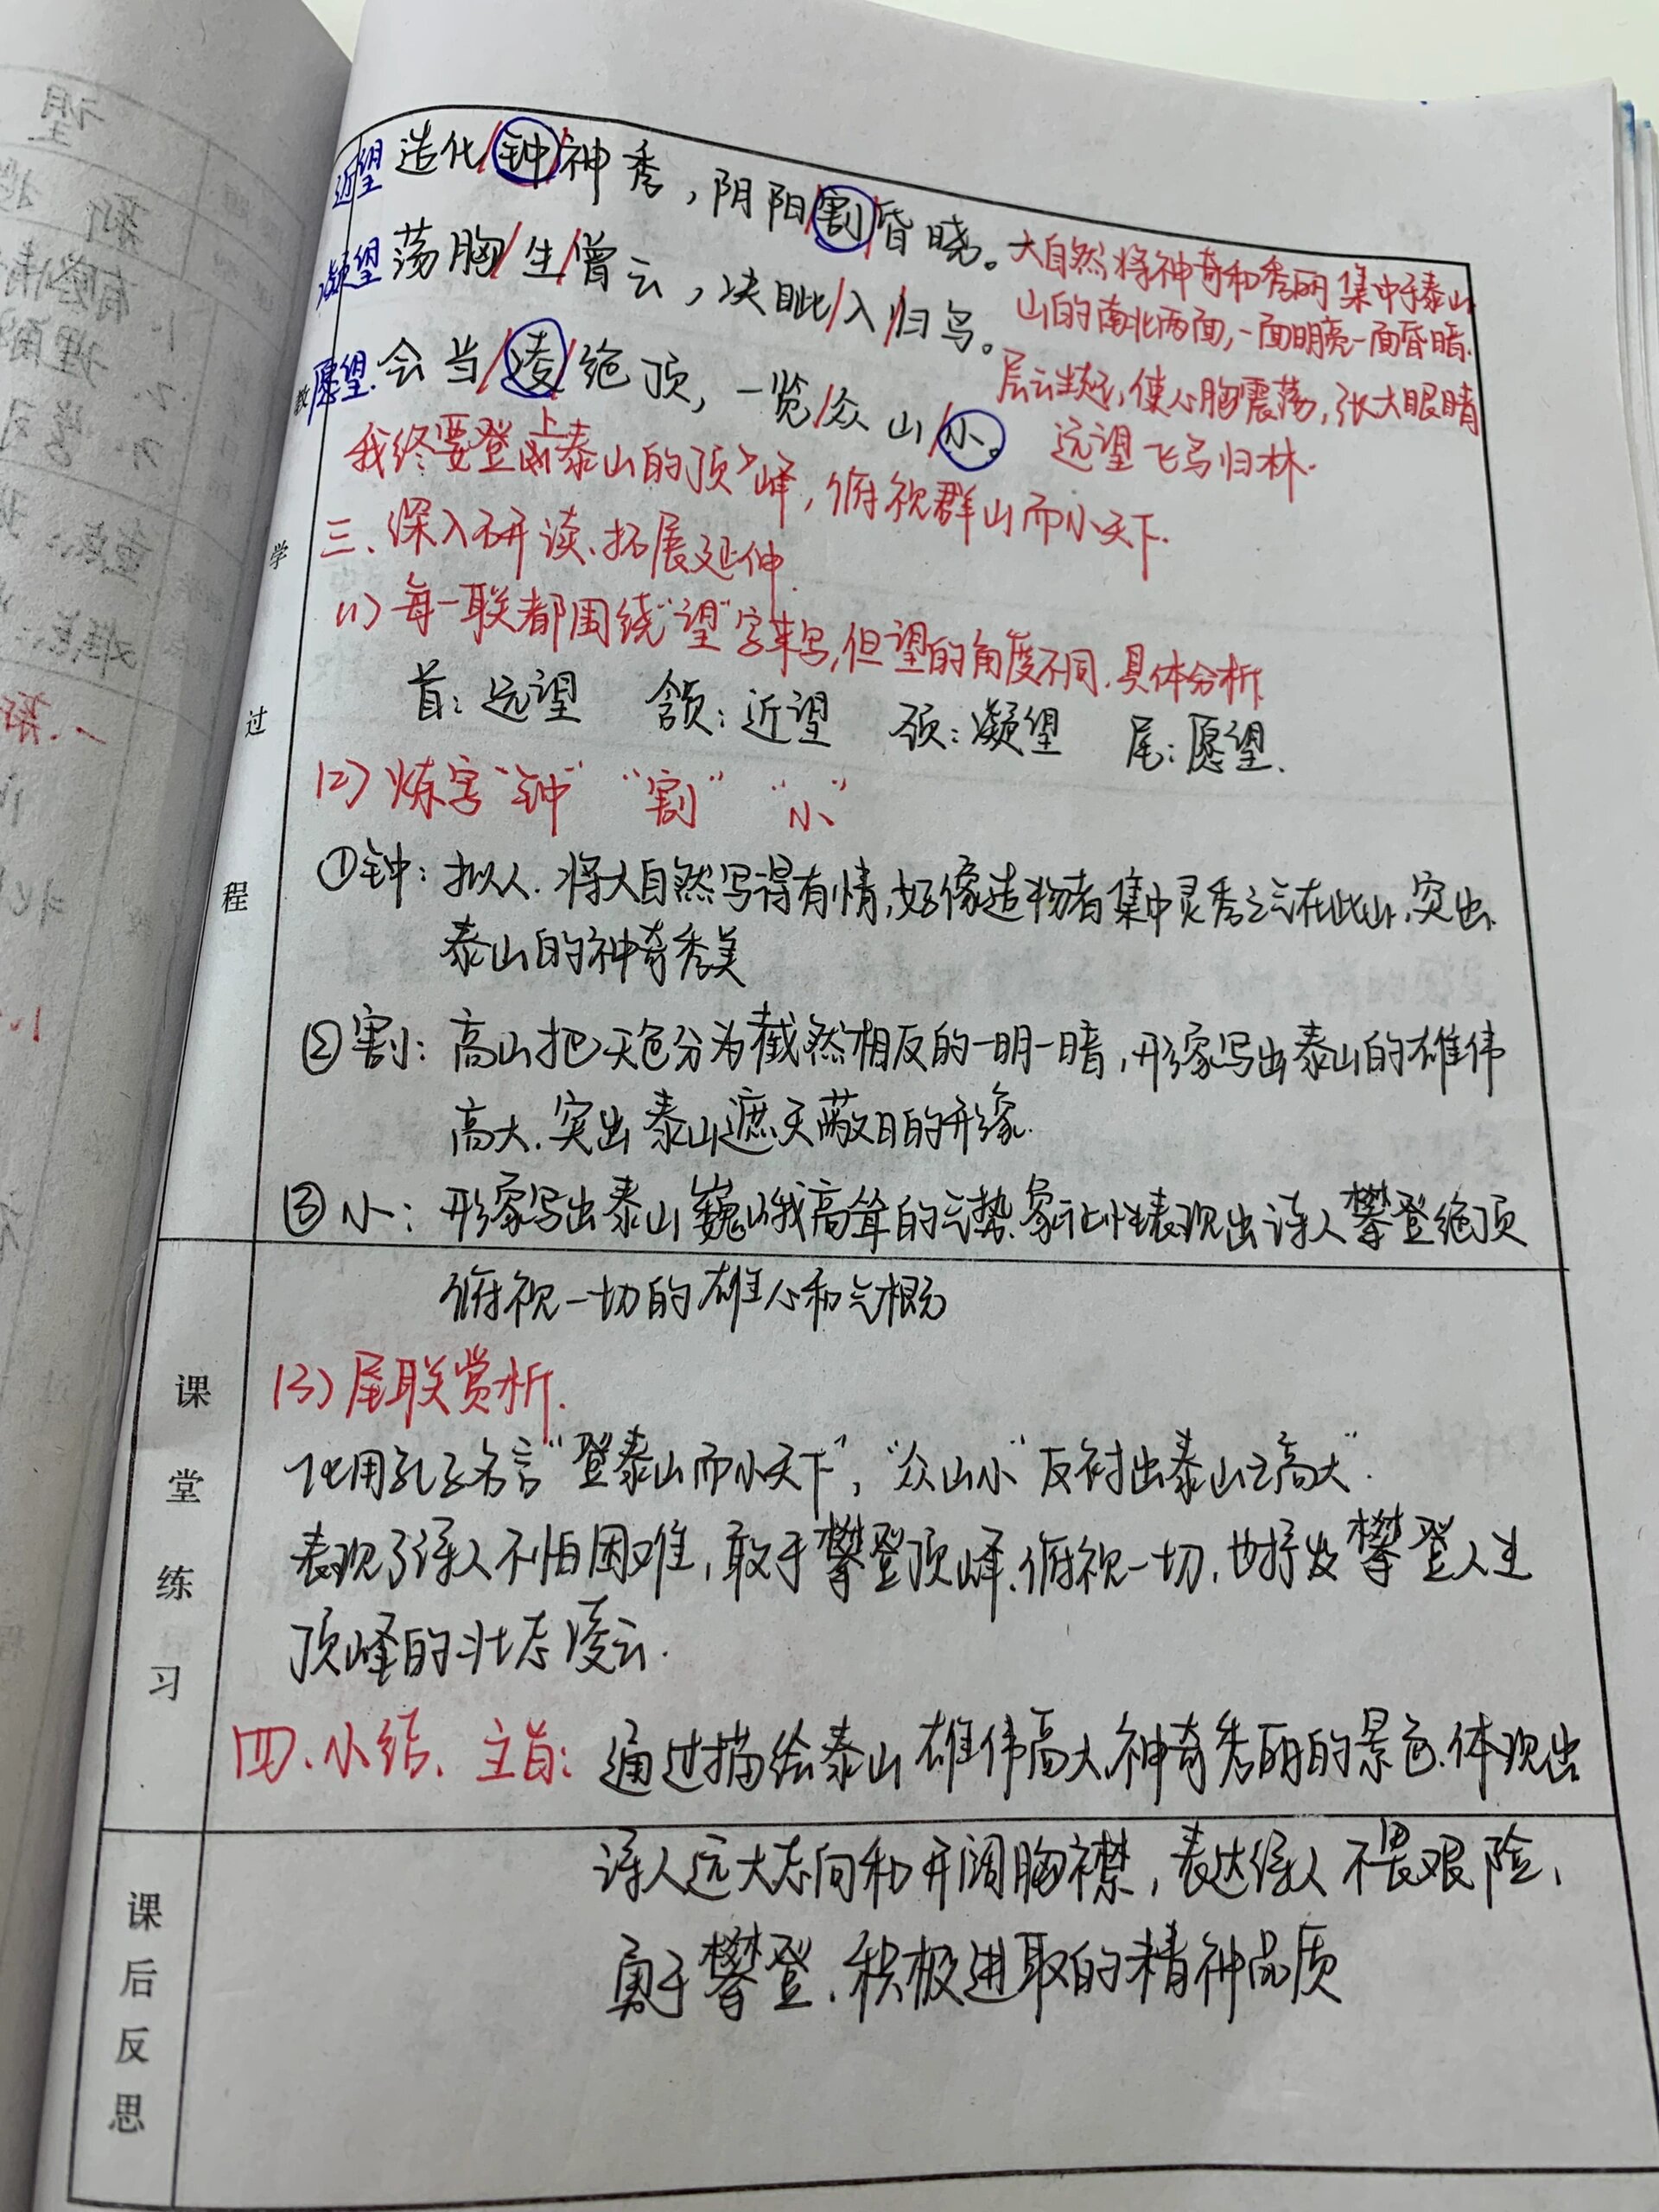 近望 造化/钟/神秀，阴阳/割/昏晓。
大自然将神奇和秀丽集中于泰山
山的南北两面，一面明亮一面昏暗.
凝望 荡胸/生/曾云，决眦/入/归鸟。
层云生起，使心胸震荡，张大眼睛
远望飞鸟归林.
愿望. 会当/凌/绝顶，一览/众山/小。
我终要登上泰山的顶峰，俯视群山而小天下.
三、深入研读、拓展延伸.
(1) 每一联都围绕"望"字来写,但望的角度不同.具体分析.
首：远望 颔：近望 颈：凝望 尾：愿望.
(2) 炼字"钟" "割" "小"
①钟：拟人.将大自然写得有情,好像造物者集中灵秀之气在此山,突出
泰山的神奇秀美
②割：高山把天色分为截然相反的一明一暗,形象写出泰山的雄伟
高大.突出泰山遮天蔽日的形象.
③小：形象写出泰山巍峨高耸的气势.象征性表现出诗人攀登绝顶
俯视一切的雄心和气概
(3) 尾联赏析.
化用孔子名言"登泰山而小天下"，"众山小"反衬出泰山之高大".
表现了诗人不怕困难,敢于攀登顶峰.俯视一切,也抒发攀登人生
顶峰的壮志凌云.
四、小结、主旨：通过描绘泰山雄伟高大、神奇秀丽的景色.体现出
诗人远大志向和开阔胸襟，表达诗人不畏艰险、
勇于攀登、积极进取的精神品质
教
学
过
程
课
堂
练
习
课
后
反
思